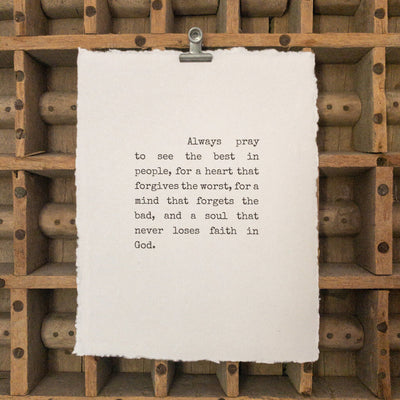 Always pray
to see the best in
people, for a heart that
forgives the worst, for a
mind that forgets the
bad, and a soul that
never loses faith in
God.